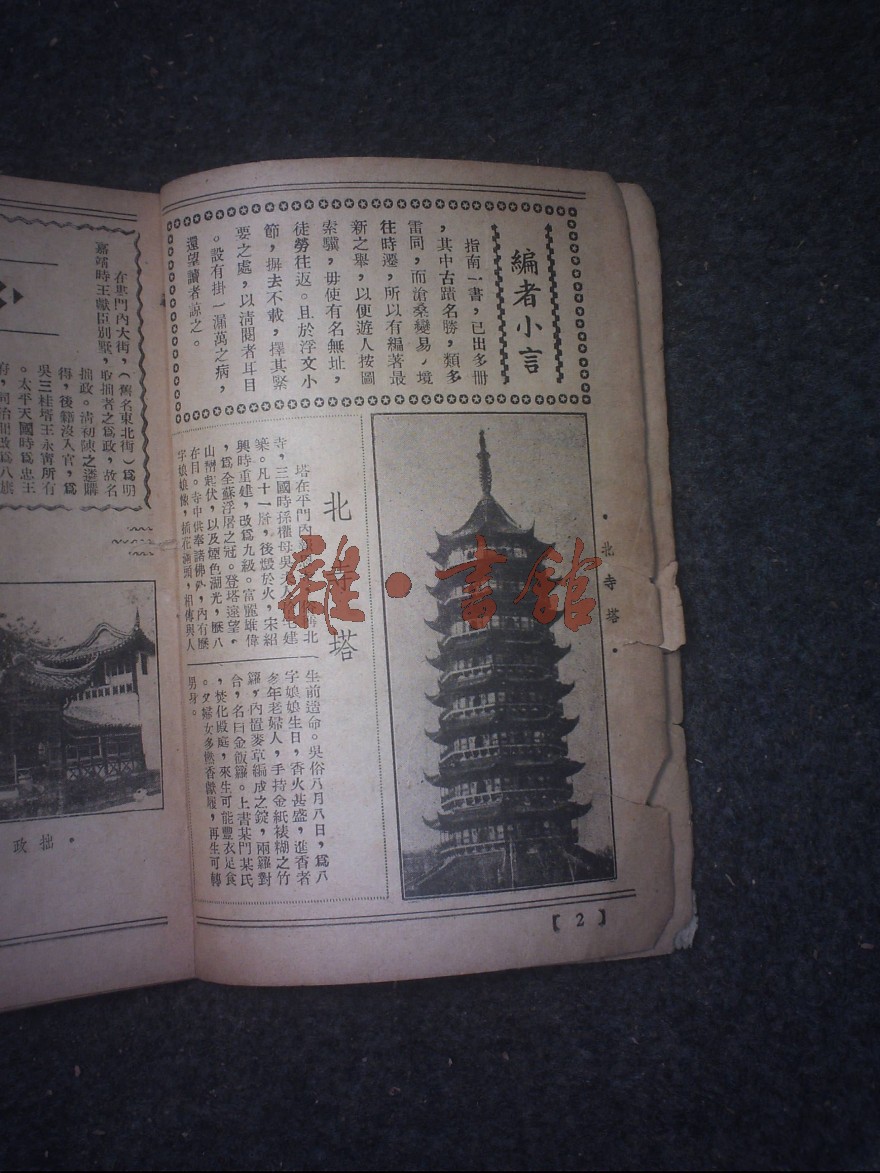 編者小言
指南一書，已出多冊
，其中古蹟名勝，類多
雷同，而滄桑變易，境
往時遷，所以有編著最
新之舉，以便遊人按圖
索驥，毋使有名無址，
徒勞往返。且於浮文小
節，摒去不載，擇其緊
要之處，以清閱者耳目
。設有掛一漏萬之病，
還望讀者諒之。
•北寺塔•
北寺塔
塔在平門內
寺，三國時孫權母吳
築。凡十一層，後燬於火，宋紹
興時重建，改爲九級。富麗雄偉
，爲全蘇浮屠之冠。登塔遠望，
山巒起伏，以及煙色湖光，歷歷
在目。寺中供奉諸佛外，內有八
字娘娘像，插花滿頭，相傳與人
生前造命。吳俗八月八日，爲八
字娘娘生日，香火甚盛，進香者
多年老婦人，手持金紙裱糊之竹
籮，內置麥草編成之錠，兩籮對
合，名曰金飯籮。上書某門某氏
，焚化殿庭，來生可能豐衣足食
。夕婦女多燃香，再生可轉
男身。
【2】
在婁門內大街，（舊名東北街）爲明
嘉靖時王獻臣別墅，取拙者之爲政，故名
拙政。清初陳之遴購
得，後籍沒入官，爲
吳三桂壻王永寧所有
。太平天國時爲忠王
府，同治間改爲八旗
•拙政
雜•書館